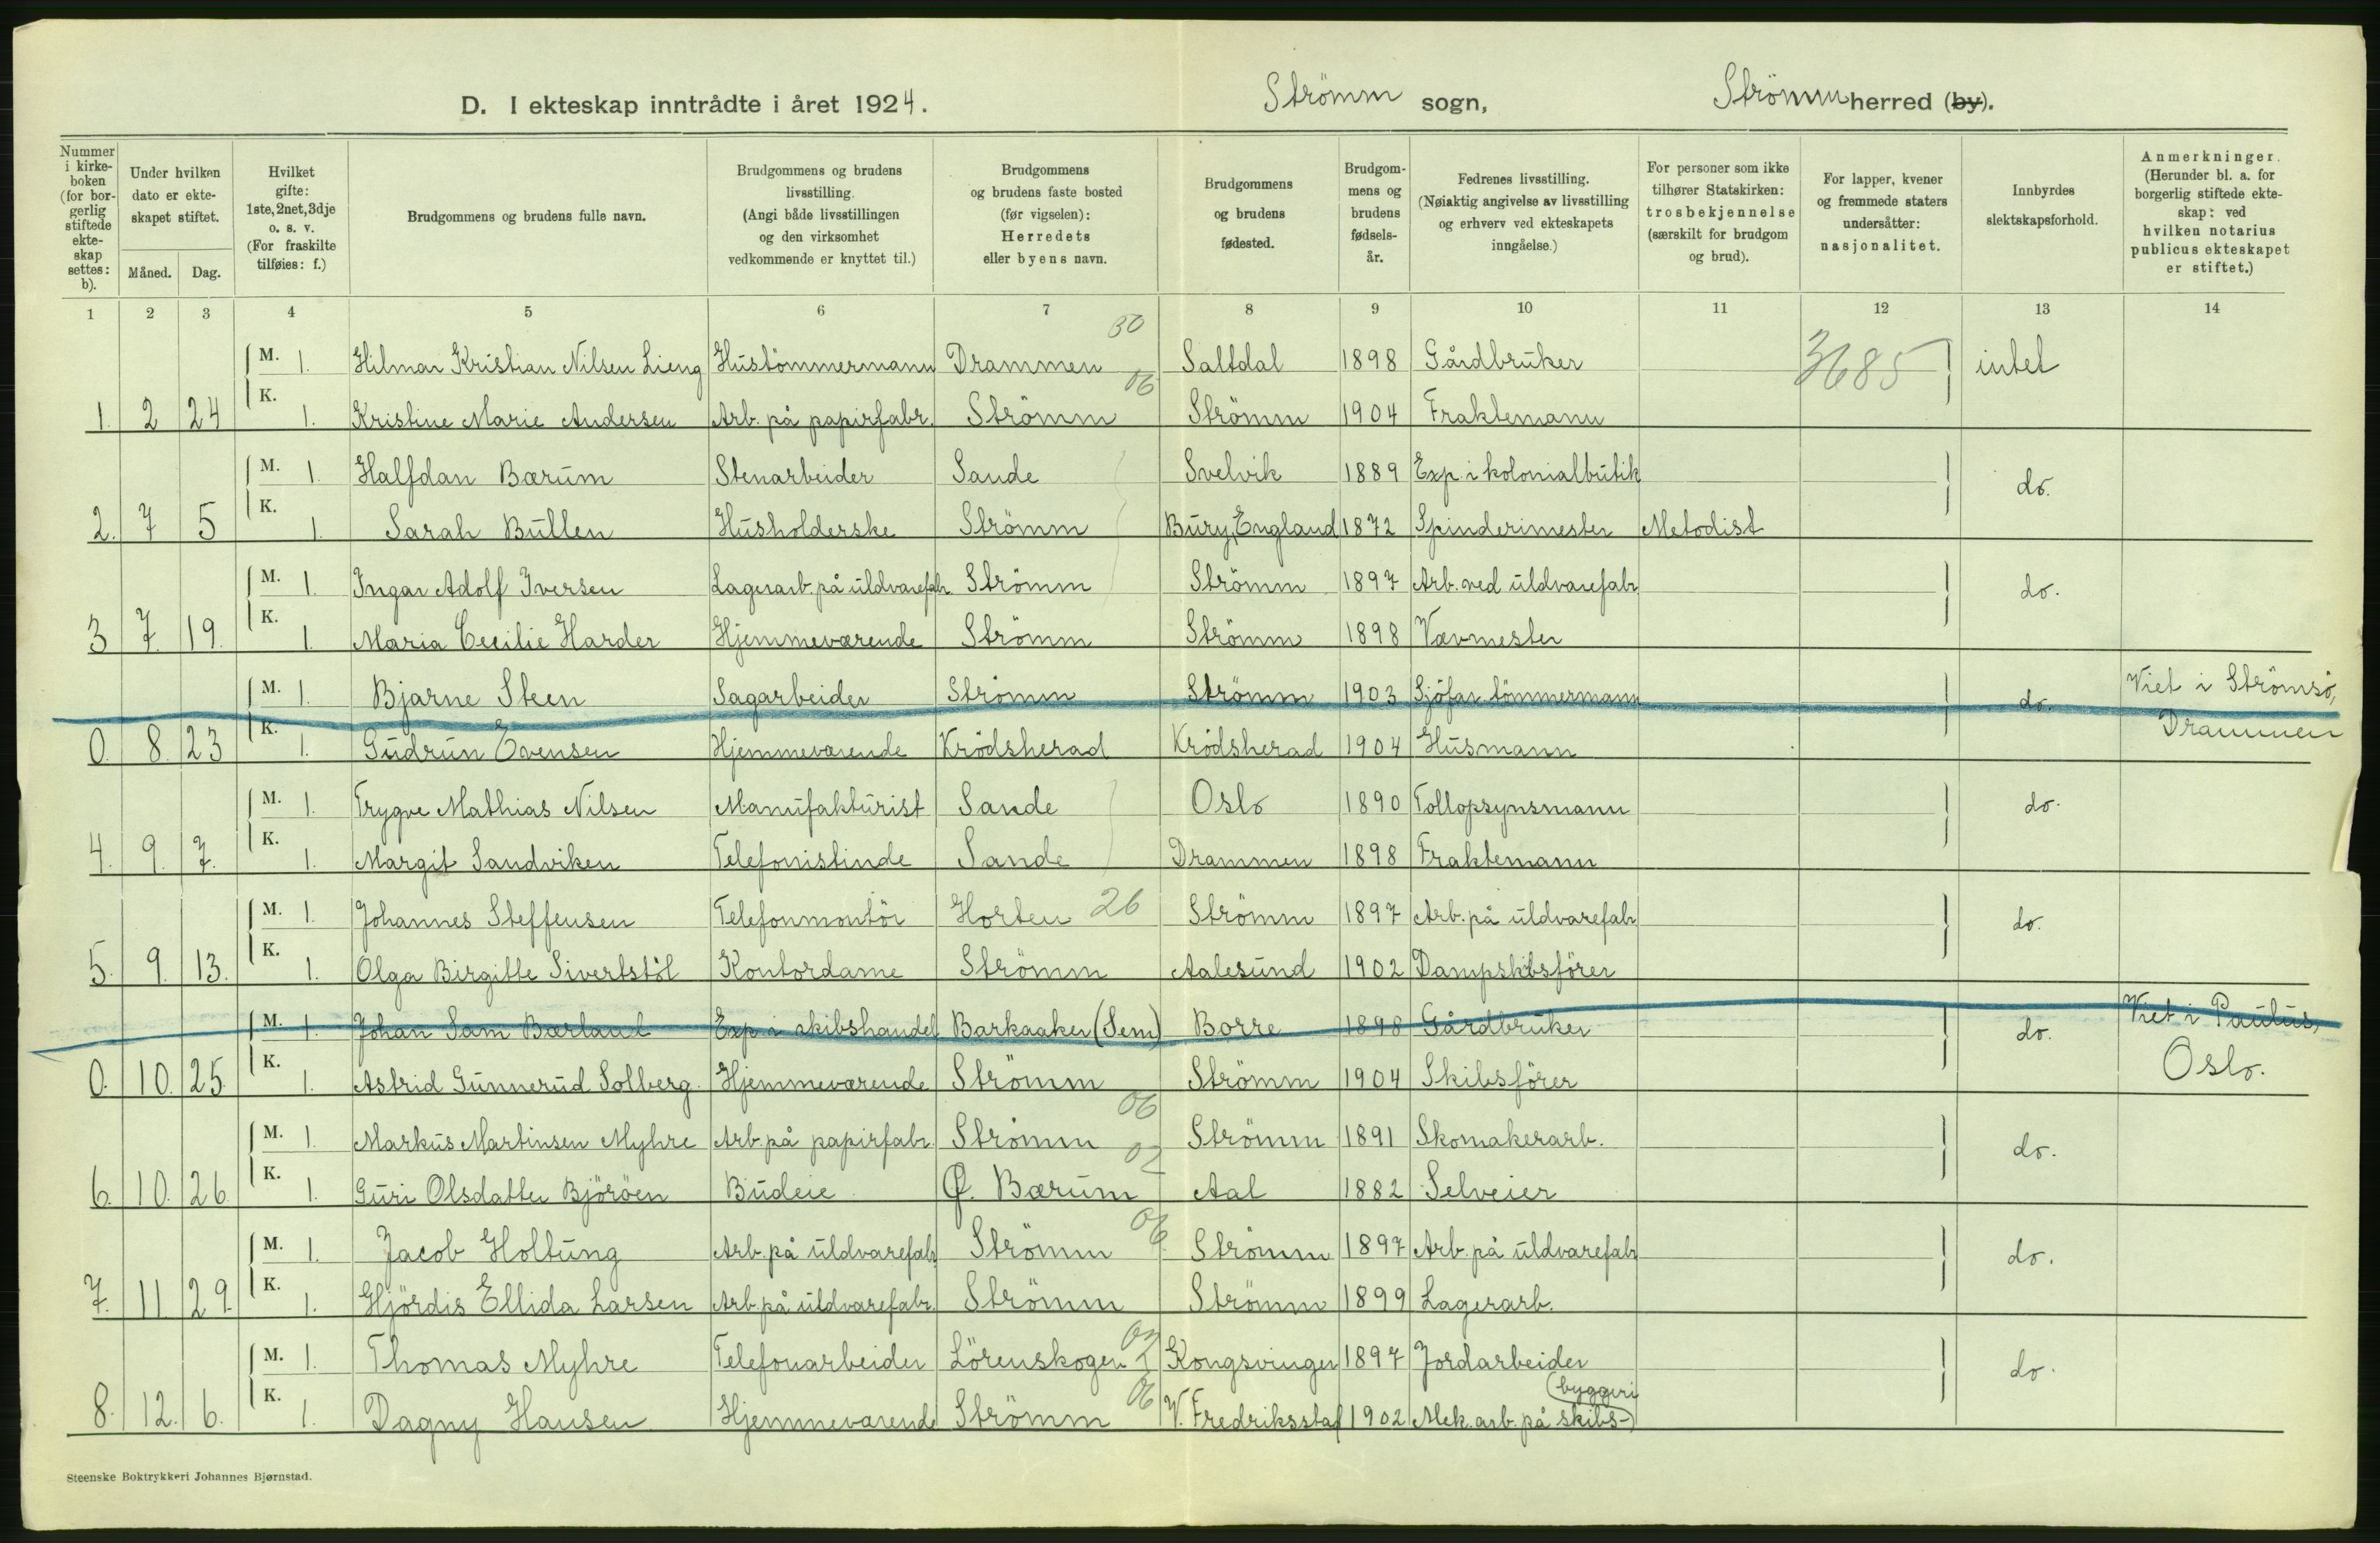 D. I ekteskap inntrådte i året 1924. Strömm sogn, Strömm herred (by).
Nummer i kirkeboken (for borgerlig stiftede ekteskap settes: b).
Under hvilken dato er ekteskapet stiftet.
Måned. Dag.
Hvilket gifte: 1ste, 2net, 3dje o. s. v. (For fraskilte tilføies: f.)
Brudgommens og brudens fulle navn.
Brudgommens og brudens livsstilling. (Angi både livsstillingen og den virksomhet vedkommende er knyttet til.)
Brudgommens og brudens faste bosted (før vigselen): Herredets eller byens navn.
Brudgommens og brudens fødested.
Brudgommens og brudens fødselsår.
Fedrenes livsstilling. (Nøiaktig angivelse av livsstilling og erhverv ved ekteskapets inngåelse.)
For personer som ikke tilhører Statskirken: trosbekjennelse (særskilt for brudgom og brud).
For lapper, kvener og fremmede staters undersåtter: nasjonalitet.
Innbyrdes slektskapsforhold.
Anmerkninger. (Herunder bl. a. for borgerlig stiftede ekteskap: ved hvilken notarius publicus ekteskapet er stiftet.)
1 2 3 4 5 6 7 8 9 10 11 12 13 14
M. 1. Hilmar Kristian Nilsen Lieng Hustömmermann Drammen 30 Saltdal 1898 Gårdbruker 3685 intet
1. 2 24 K. 1. Kristine Marie Andersen Arb. på papirfabr. Strömm 06 Strömm 1904 Fraktemann
M. 1. Halfdan Bærum Stenarbeider Sande Svelvik 1889 Exp. i kolonialbutik do.
2. 7 5 K. 1. Sarah Bullen Husholderske Strömm Bury, England 1872 Spinderimester Metodist
M. 1. Ingar Adolf Iversen Lagerarb. på uldvarefabr. Strömm Strömm 1897 Arb. ved uldvarefabr. do.
3 7. 19. K. 1. Maria Cecilie Harder Hjemmeværende Strömm Strömm 1898 Vævmester
M. 1. Bjarne Steen Sagarbeider Strömm Strömm 1903 Sjöfar. tömmermann do. Viet i Strömsö,
0. 8. 23 K. 1. Gudrun Evensen Hjemmeværende Krödsherad Krödsherad 1904 Husmann Drammen
M. 1. Trygve Mathias Nilsen Manufakturist Sande Oslo 1890 Tollopsynsmann do.
4. 9. 7. K. 1. Margit Sandviken Telefonistinde Sande Drammen 1898 Fraktemann
M. 1. Johannes Steffensen Telefonmontör Horten 26 Strömm 1897 Arb. på uldvarefabr do.
5. 9. 13. K. 1. Olga Birgitte Sivertstöl Kontordame Strömm Aalesund 1902 Dampskibsförer
M. 1. Johan Sam Bærland Exp i skibshandel Barkaaker (Sem) Borre 1898 Gårdbruker do. Viet i Paulus,
0. 10. 25. K. 1. Astrid Gunnerud Solberg. Hjemmeværende Strömm Strömm 1904 Skibsförer Oslo.
M. 1. Markus Martinsen Myhre Arb. på papirfabr. Strömm 06 Strömm 1891 Skomakerarb. do.
6. 10. 26 K. 1. Guri Olsdatter Björöen Budeie Ø. Bærum 02 Aal 1882 Selveier
M. 1. Jacob Holtung Arb. på uldvarefabr Strömm 06 Strömm 1897 Arb. på uldvarefabr do.
7. 11 29. K. 1. Hjördis Ellida Larsen Arb. på uldvarefabr. Strömm Strömm 1899 Lagerarb.
M. 1. Thomas Myhre Telefonarbeider Lörenskogen 02 Kongsvinger 1897 Jordarbeider do.
8. 12. 6. K. 1. Dagny Hansen Hjemmeværende Strömm 06 V. Fredriksstad 1902 Mek. arb. på skibs-(byggeri)
Steenske Boktrykkeri Johannes Bjørnstad.